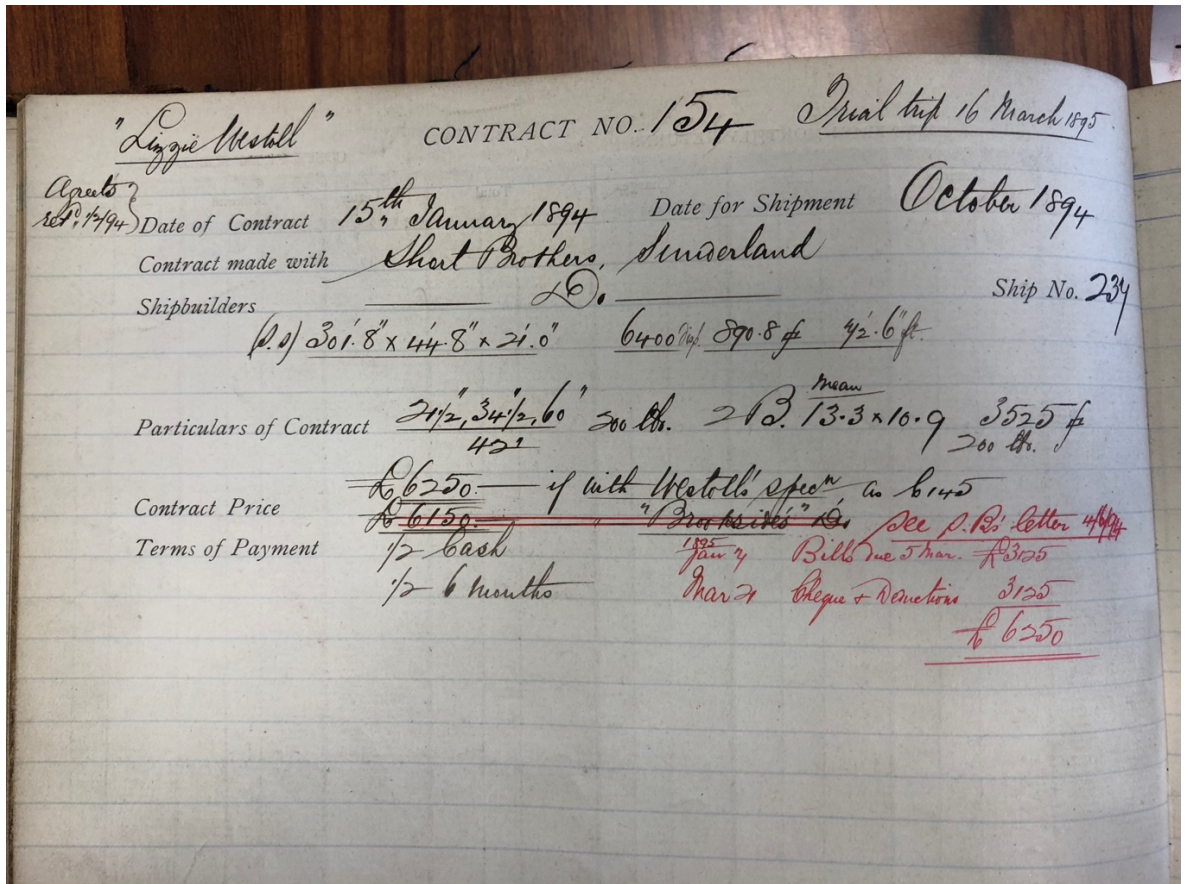 "Lizzie Westoll" CONTRACT NO. 154 Trial trip 16 March 1895
Agreets
retd. 1/2/94 Date of Contract 15th January 1894 Date for Shipment October 1894
Contract made with Short Brothers, Sunderland
Shipbuilders Do. Ship No. 234
(S.S) 301'.8" x 44'.8" x 21'.0" 6400 disp. 890.8 42'.6" ft.
Particulars of Contract 21½", 34½", 60" 200 lbs. 2 B. Mean 13.3 x 10.9 3525
42" 200 lbs.
£6250.— if with Westoll's specn, as C145
Contract Price £6150.— " "Brookside's" Do. See S. Bs' letter 4/6/94
Terms of Payment ½ Cash 1895 Jan 7 Bills due 5 Mar. £3125
½ 6 months Mar 21 Cheque & Deductions 3125
£6250